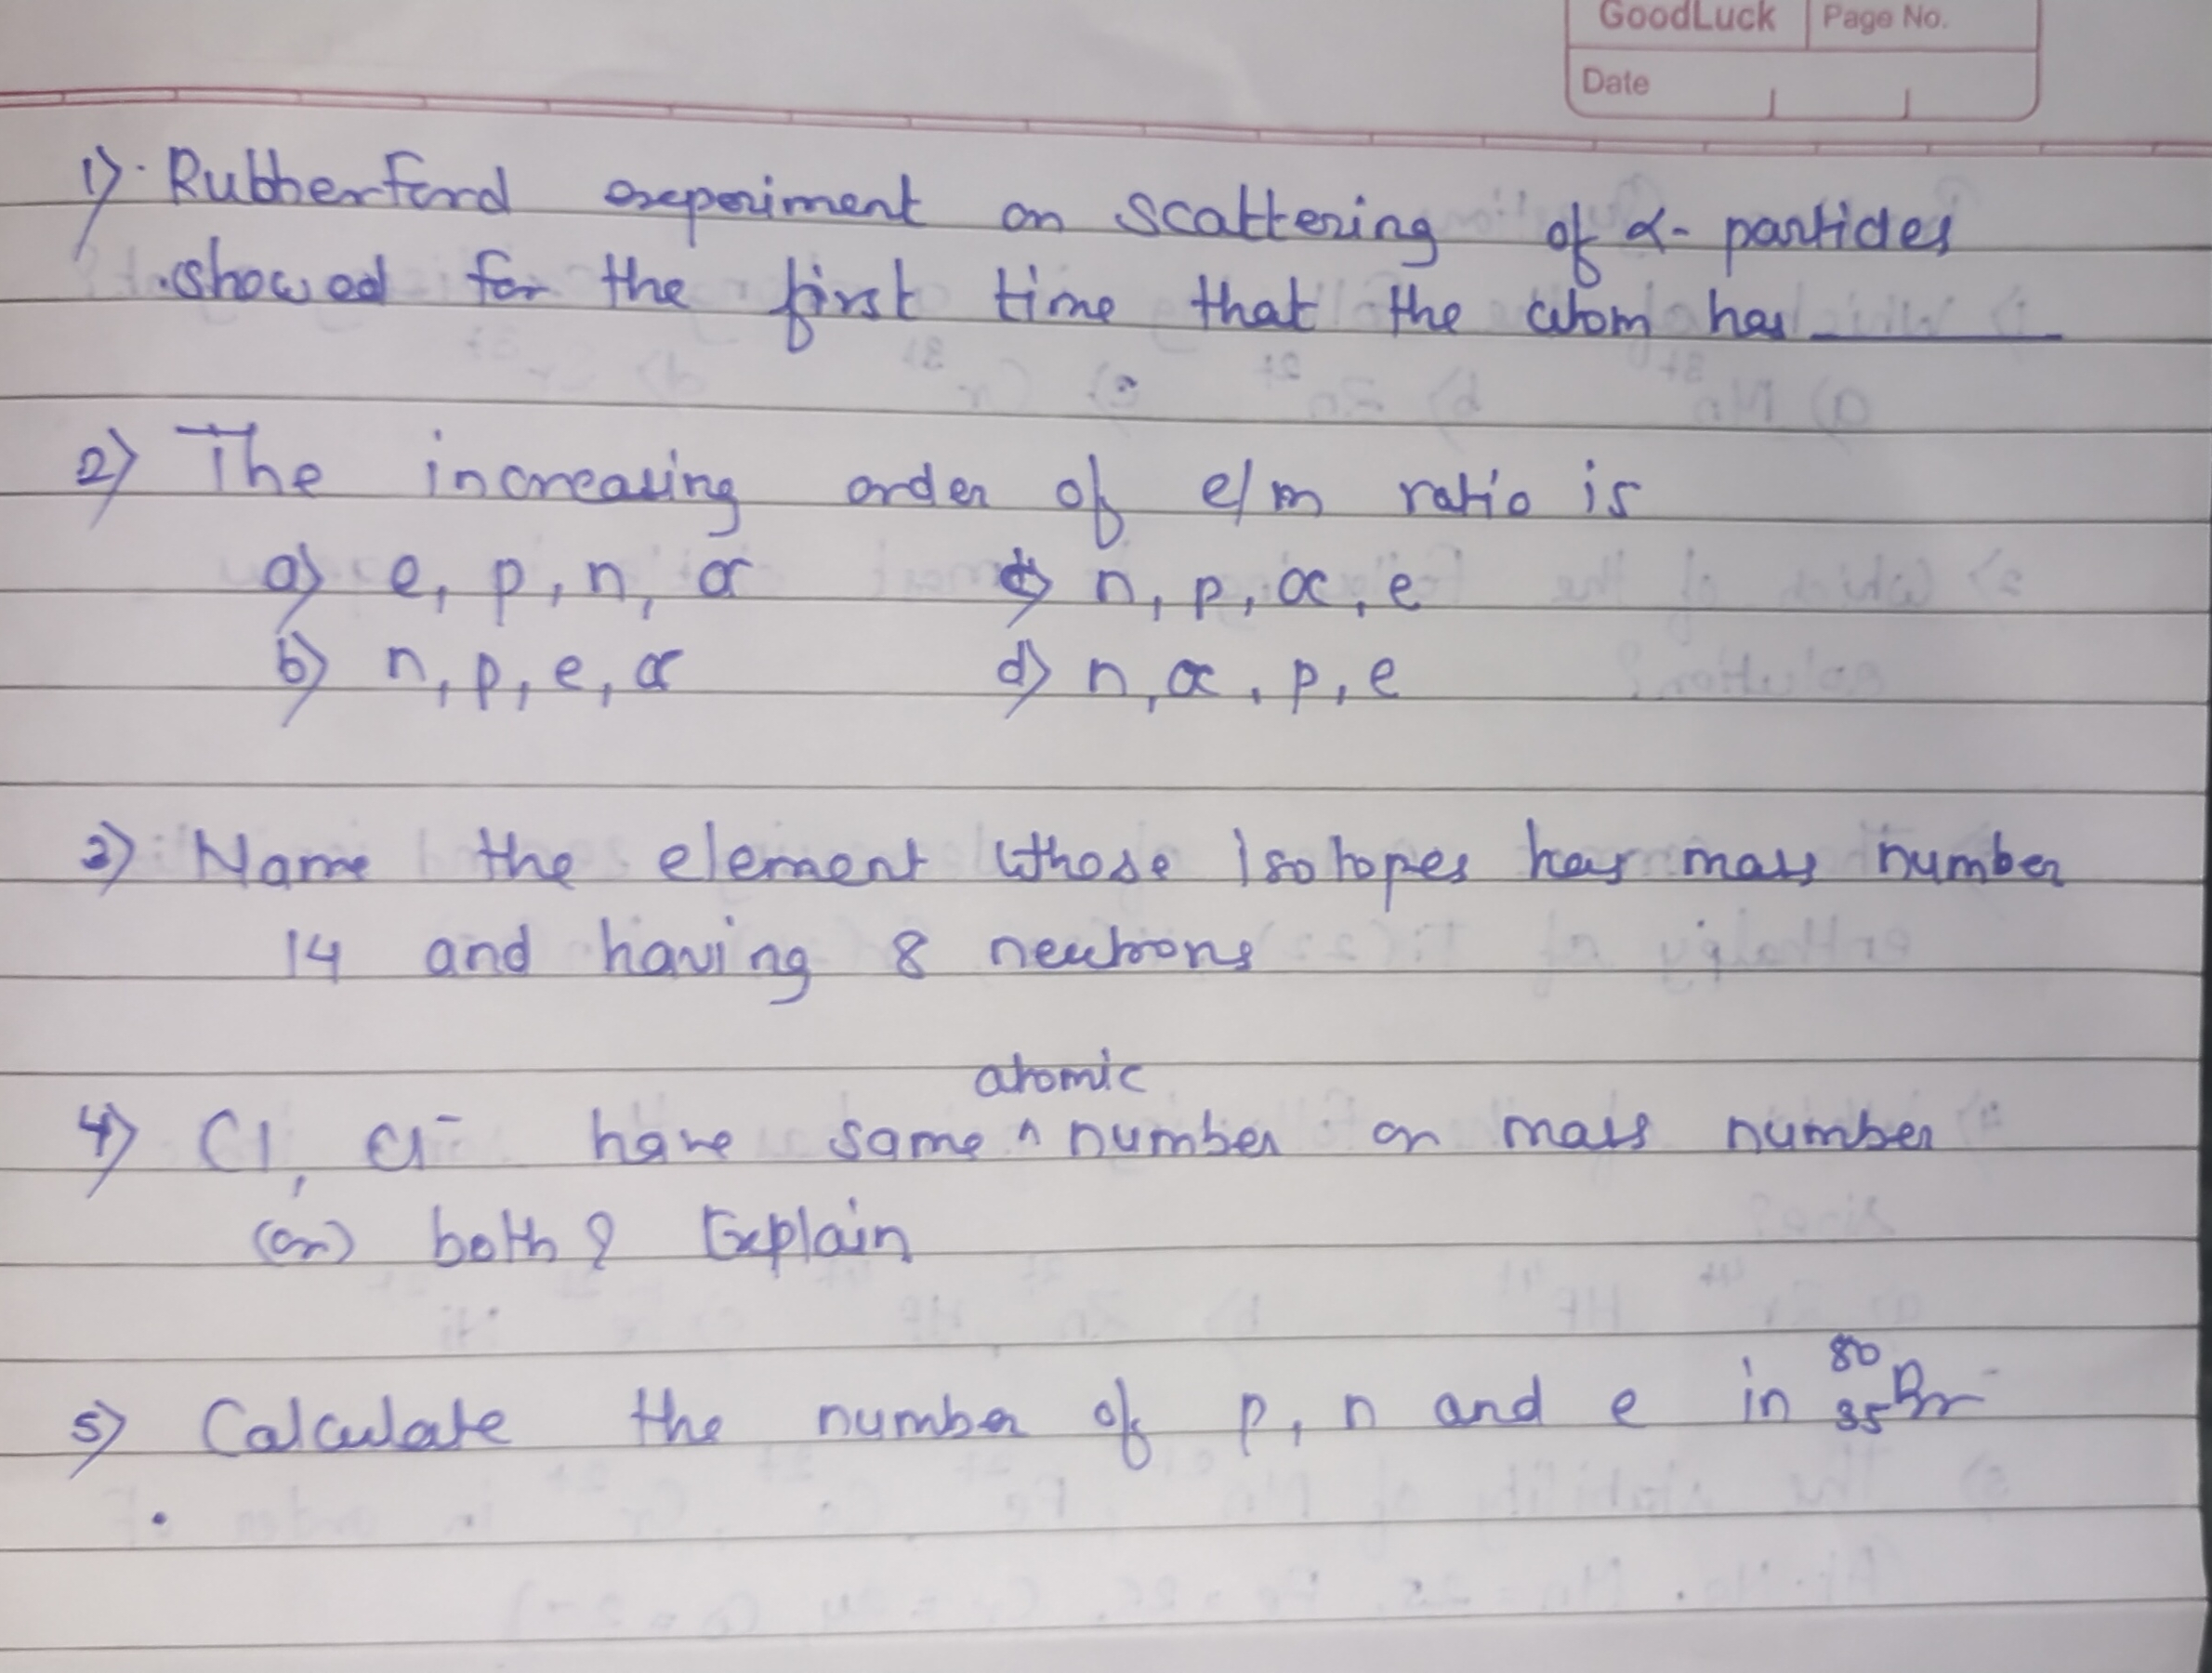 GoodLuck Page No.
Date
1) Rutherford experiment on scattering of α- particles
showed for the first time that the atom has ______
2) The increasing order of e/m ratio is
a) e, p, n, α c) n, p, α, e
b) n, p, e, α d) n, α, p, e
3) Name the element whose isotopes has mass number
14 and having 8 neutrons
atomic
4) Cl, Cl⁻ have same ^ number or mass number
(or) both? Explain
5) Calculate the number of p, n and e in ⁸⁰₃₅Br